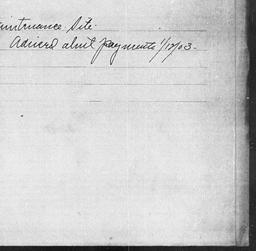 aintenance Site.
Advised about payments 1/17/03.